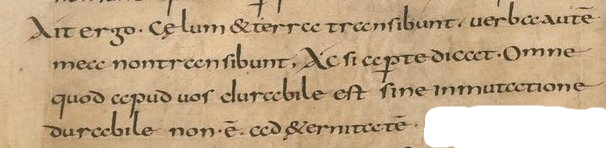 Ait ergo. Cęlum & terra transibunt. uerba autē
mea non transibunt, Ac si aperte dicat. Omne
quod apud uos durabile est sine inmutatione
durabile non. ē. ad &ernitatē